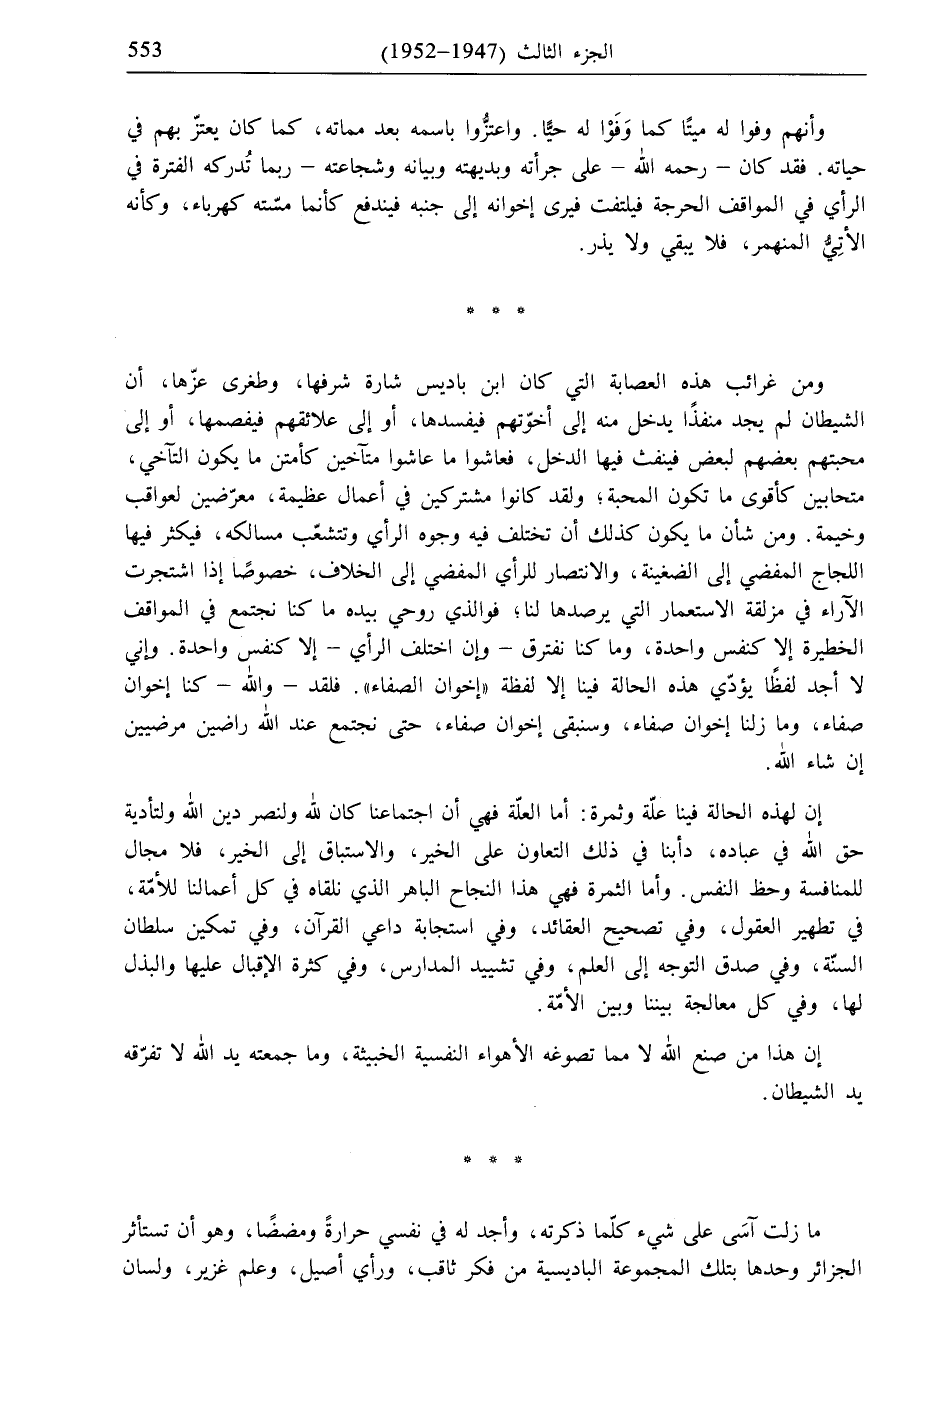 الجزء الثالث (1947–1952) 553
وأنهم وفوا له ميتًا كما وَفَوْا له حيًّا. واعتزُّوا باسمه بعد مماته، كما كان يعتزّ بهم في
حياته. فقد كان – رحمه الله – على جرأته وبديهته وبيانه وشجاعته – ربما تُدركه الفترة في
الرأي في المواقف الحرجة فيلتفت فيرى إخوانه إلى جنبه فيندفع كأنما مسّته كهرباء، وكأنه
الأتِيُّ المنهمر، فلا يبقي ولا يذر.
* * *
ومن غرائب هذه العصابة التي كان ابن باديس شارة شرفها، وطغرى عزّها، أن
الشيطان لم يجد منفذًا يدخل منه إلى أخوّتهم فيفسدها، أو إلى علائقهم فيفصمها، أو إلى
محبتهم بعضهم لبعض فينفث فيها الدخل، فعاشوا ما عاشوا متآخين كأمتن ما يكون التآخي،
متحابين كأقوى ما تكون المحبة؛ ولقد كانوا مشتركين في أعمال عظيمة، معرّضين لعواقب
وخيمة. ومن شأن ما يكون كذلك أن تختلف فيه وجوه الرأي وتتشعّب مسالكه، فيكثر فيها
اللجاج المفضي إلى الضغينة، والانتصار للرأي المفضي إلى الخلاف، خصوصًا إذا اشتجرت
الآراء في مزلقة الاستعمار التي يرصدها لنا؛ فوالذي روحي بيده ما كنا نجتمع في المواقف
الخطيرة إلا كنفس واحدة، وما كنا نفترق – وإن اختلف الرأي – إلا كنفس واحدة. وإني
لا أجد لفظًا يؤدّي هذه الحالة فينا إلا لفظة «إخوان الصفاء». فلقد – والله – كنا إخوان
صفاء، وما زلنا إخوان صفاء، وسنبقى إخوان صفاء، حتى نجتمع عند الله راضين مرضيين
إن شاء الله.
إن لهذه الحالة فينا علّة وثمرة: أما العلّة فهي أن اجتماعنا كان لله ولنصر دين الله ولتأدية
حق الله في عباده، دأبنا في ذلك التعاون على الخير، والاستباق إلى الخير، فلا مجال
للمنافسة وحظ النفس. وأما الثمرة فهي هذا النجاح الباهر الذي نلقاه في كل أعمالنا للأمّة،
في تطهير العقول، وفي تصحيح العقائد، وفي استجابة داعي القرآن، وفي تمكين سلطان
السنّة، وفي صدق التوجه إلى العلم، وفي تشييد المدارس، وفي كثرة الإقبال عليها والبذل
لها، وفي كل معالجة بيننا وبين الأمّة.
إن هذا من صنع الله لا مما تصوغه الأهواء النفسية الخبيثة، وما جمعته يد الله لا تفرّقه
يد الشيطان.
* * *
ما زلت آسَى على شيء كلّما ذكرته، وأجد له في نفسي حرارةً ومضضًا، وهو أن تستأثر
الجزائر وحدها بتلك المجموعة الباديسية من فكر ثاقب، ورأي أصيل، وعلم غزير، ولسان